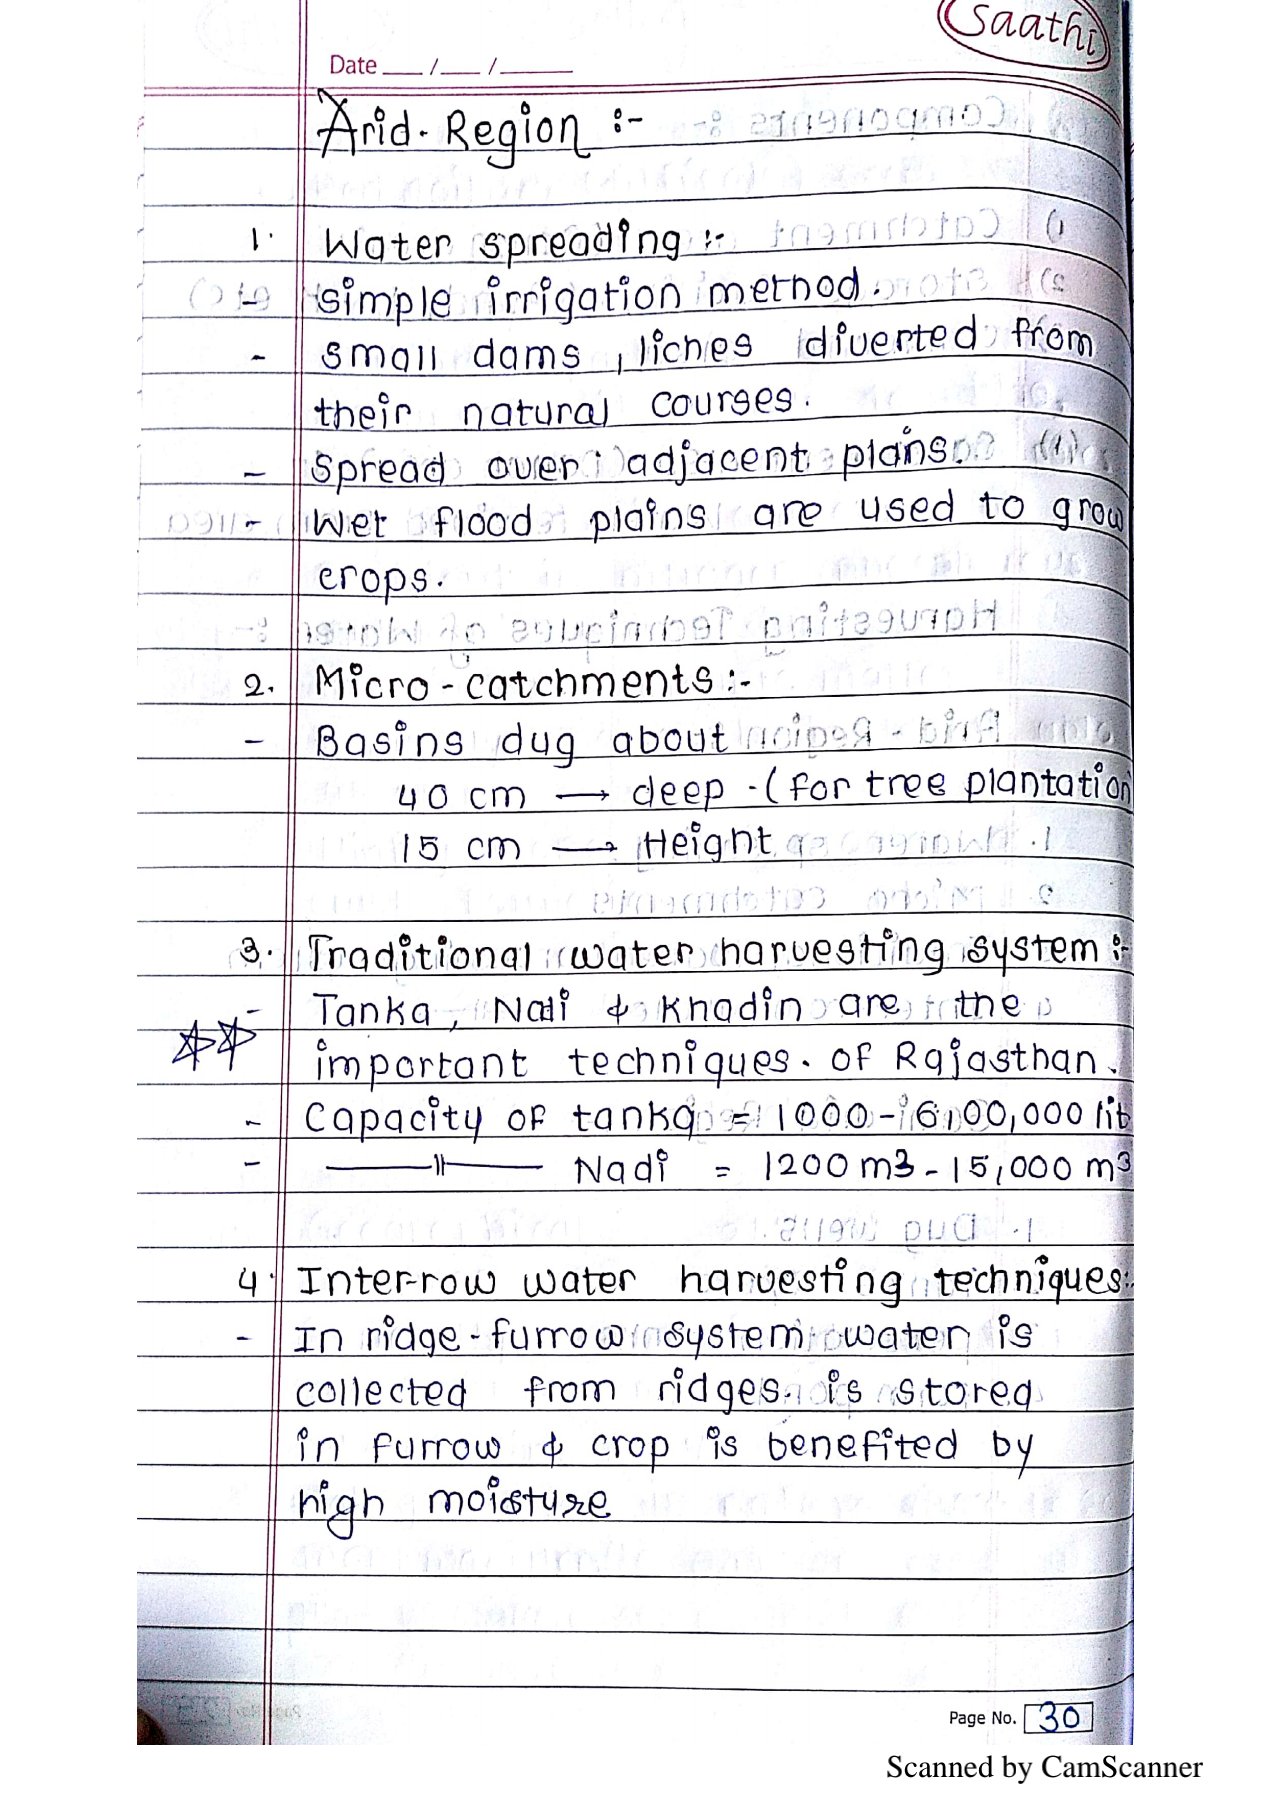 Saathi
Date ___ / ___ / _____
Arid - Region :-
1. Water spreading :-
- simple irrigation method.
- small dams, liches diverted from
their natural courses.
- Spread over adjacent plains.
- Wet flood plains are used to grow
crops.
2. Micro - catchments :-
- Basins dug about
40 cm → deep - (for tree plantation
15 cm → Height
3. Traditional water harvesting system :-
- Tanka, Nadi & Khadin are the
important techniques. of Rajasthan.
- Capacity of tanka = 1000 - 6,00,000 lit
- ——॥—— Nadi = 1200 m3 - 15,000 m3
4. Inter-row water harvesting techniques:-
- In ridge - furrow system water is
collected from ridges. is stored
in furrow & crop is benefited by
high moisture
Page No. 30
Scanned by CamScanner